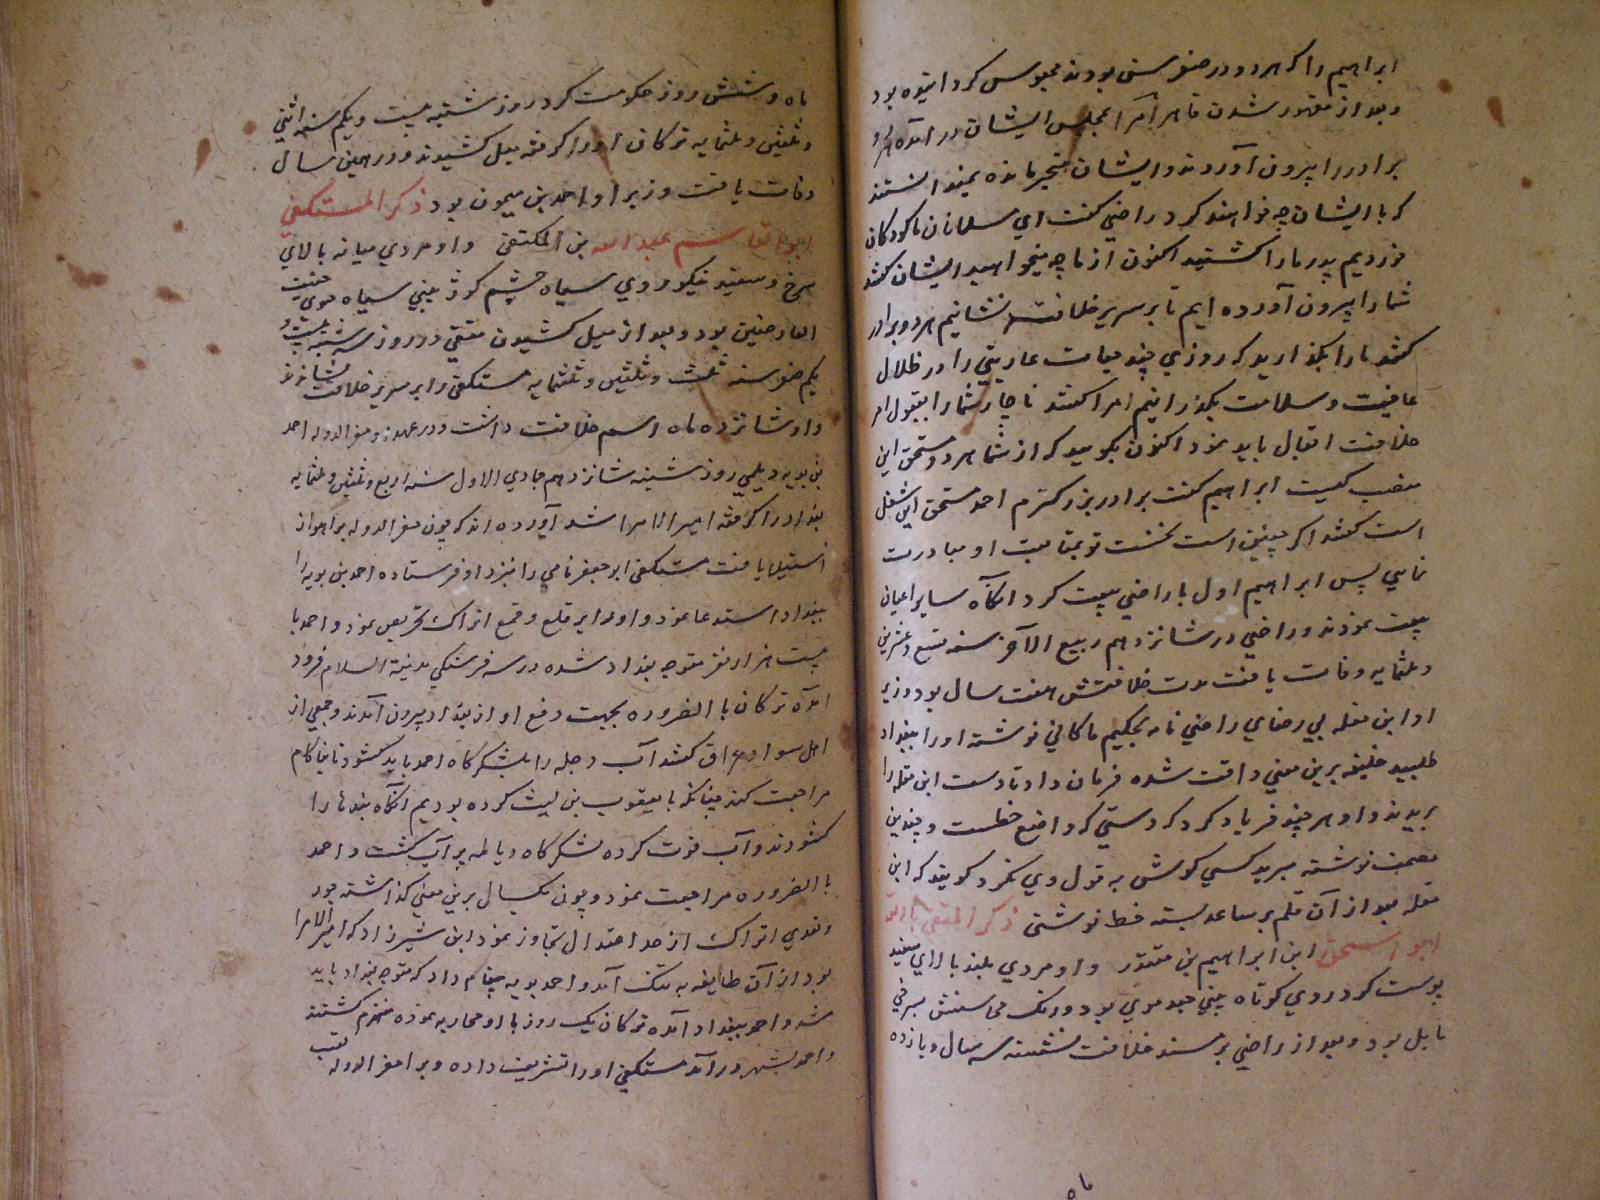 ابراهیم را که هر دو در صغر سن بودند محبوس کردانیده بود
و بعد از مقهور شدن قاهر امرا بمجلس ایشان در آمده هر دو
برادر را بیرون آوردند و ایشان متحیر مانده نمیدانستند
که با ایشان چه خواهند کرد راضی کفت ای مسلمانان ما کودکان
خوردیم پدر ما را کشتید اکنون از ما چه میخواهید ایشان کفتند
شما را بیرون آورده ایم تا بر سریر خلافت نشانیم هر دو برادر
کفتند ما را بکذارید که روزی چند حیات عاریتی را در ظلال
عافیت و سلامت بکذرانیم امرا کفتند ناچار شما را بقبول امر
خلافت اقبال باید نمود اکنون بکویید که از شما هر دو مستحق این
منصب کیست ابراهیم کفت برادر بزرکترم احمد مستحق این شغل
است کفتند اکر چنین است نخست تو بمتابعت او مبادرت
نمای پس ابراهیم اول با راضی بیعت کرد انکاه سایر اعیان
بیعت نمودند و راضی در شانزدهم ربیع الآخر سنه تسع و عشرین
و ثلثمایه وفات یافت مدت خلافتش هفت سال بود و وزیر
او ابن مقله بی رضای راضی نامه بجکیم ماکانی نوشته او را ببغداد
طلبید خلیفه برین معنی واقف شده فرمان داد تا دست ابن مقله را
بریدند و او هر چند فریاد کرد که دستی که واضع خطست و چندین
مصحف نوشته مبرید کسی کوش به قول وی نکرد کویند که ابن
مقله بعد از آن قلم بر ساعد بسته خط نوشتی ذکر المتقی بالله
ابو اسحق ابن ابراهیم بن مقتدر و او مردی بلند بالای سفید
پوست کرد روی کوتاه بینی جعد موی بود و رنک محاسنش بسرخی
مایل بود و بعد از راضی بر مسند خلافت نشسته سه سال و یازده
ماه
ماه و شش روز حکومت کرد روز شنبه بیست و یکم سنه اثنی
و ثلثین و ثلثمایه ترکان او را کرفته میل کشیدند و در همین سال
وفات یافت وزیر او احمد بن میمون بود ذکر المستکفی
ابو القاسم عبد الله بن المکتفی و او مردی میانه بالای
سرخ و سفید نیکو روی سیاه چشم کوژ بینی سیاه موی خفیف
العارضین بود و بعد از میل کشیدن متقی در روز سه شنبه بیست و
یکم صفر سنه ثلث و ثلثین و ثلثمایه مستکفی را بر سریر خلافت نشاندند
و او شانزده ماه اسم خلافت داشت و در عهد او معز الدوله احمد
بن بویه دیلمی روز شنبه شانزدهم جمادی الاول سنه اربع و ثلثین و ثلثمایه
بغداد را کرفته امیر الامرا شد آورده اند که چون معز الدوله بر اهواز
استیلا یافت مستکفی ابو جعفر نامی را نزد او فرستاده احمد بن بویه را
ببغداد استدعا نمود و او را بر قلع و قمع اتراک تحریص نمود و احمد با
بیست هزار نفر متوجه بغداد شده در سه فرسنکی مدینة السلام فرود
آمده ترکان با الضروره بجهت دفع او از بغداد بیرون آمدند و جمعی از
اهل سواد عراق کفتند آب دجله را بلشکر کاه احمد باید کشود تا ناکام
مراجعت کند چنانکه با یعقوب بن لیث کرده بودیم انکاه بندها را
کشودند و آب قوت کرده لشکر کاه دیالمه پر آب کشت و احمد
با الضروره مراجعت نمود و چون یکسال برین معنی کذاشته جور
و تعدی اتراک از حد اعتدال تجاوز نمود ابن شیرزاد که امیر الامرا
بود از آن طایفه به تنک آمد و احمد بویه پیغام داد که متوجه بغداد باید
شد و احمد ببغداد آمده ترکان یک روز با او محاربه نموده منهزم کشتند
و احمد بشهر در آمد مستکفی او را تشریف داده و برا معز الدوله لقب